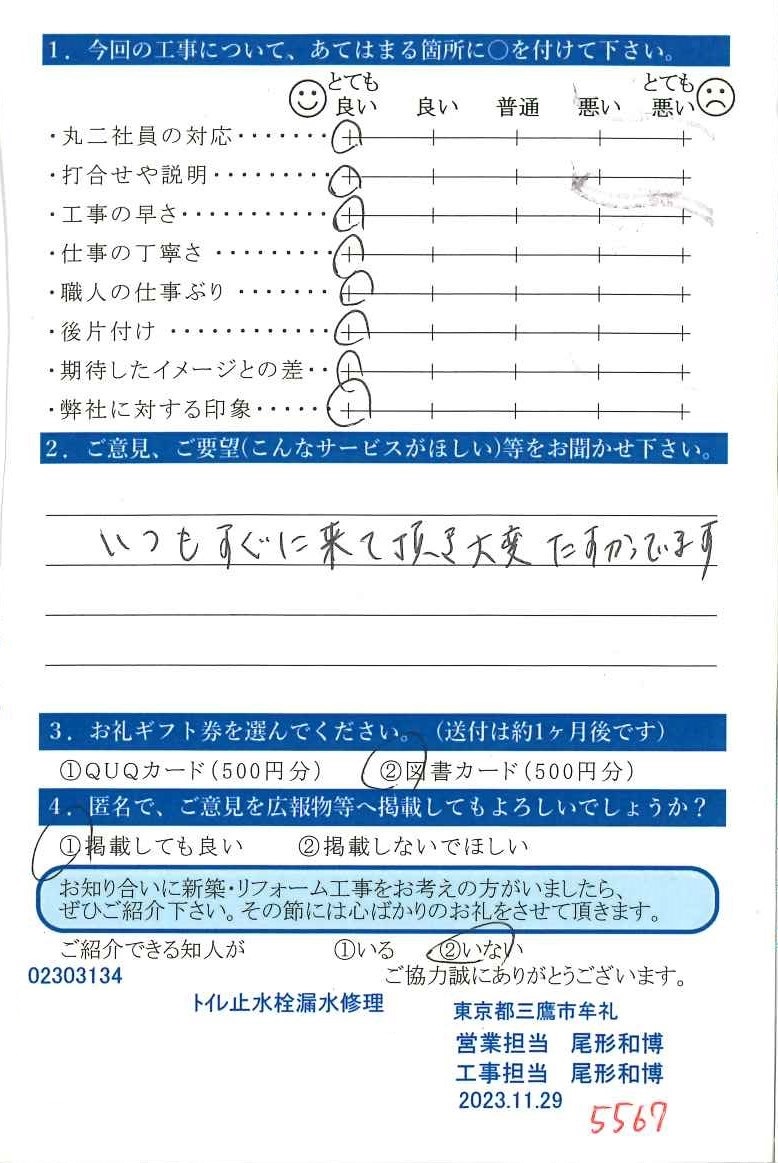 1．今回の工事について、あてはまる箇所に○を付けて下さい。
とても良い 良い 普通 悪い とても悪い
・丸二社員の対応‥‥‥‥
・打合せや説明‥‥‥‥‥
・工事の早さ‥‥‥‥‥‥
・仕事の丁寧さ ‥‥‥‥‥
・職人の仕事ぶり ‥‥‥‥
・後片付け ‥‥‥‥‥‥
・期待したイメージとの差‥
・弊社に対する印象‥‥‥
2．ご意見、ご要望(こんなサービスがほしい)等をお聞かせ下さい。
いつもすぐに来て頂き大変たすかってます
3．お礼ギフト券を選んでください。（送付は約1ヶ月後です）
①QUQカード(500円分) ②図書カード(500円分)
4．匿名で、ご意見を広報物等へ掲載してもよろしいでしょうか？
①掲載しても良い ②掲載しないでほしい
お知り合いに新築・リフォーム工事をお考えの方がいましたら、
ぜひご紹介下さい。その節には心ばかりのお礼をさせて頂きます。
ご紹介できる知人が ①いる ②いない
02303134 ご協力誠にありがとうございます。
トイレ止水栓漏水修理 東京都三鷹市牟礼
営業担当 尾形和博
工事担当 尾形和博
2023.11.29
5567